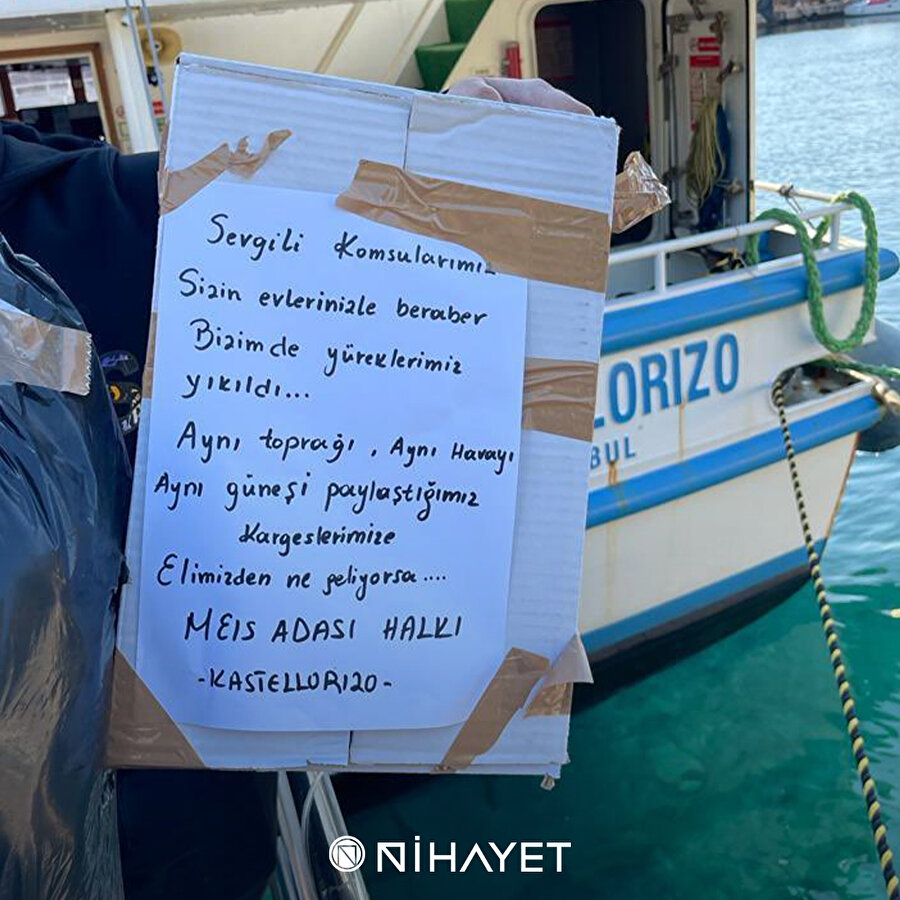 Sevgili Komsularımız
Sizin evlerinizle beraber
Bizimde yüreklerimiz
yıkıldı...
Aynı toprağı, Aynı Havayı
Aynı güneşi paylaştığımız
Kargeslerimize
Elimizden ne geliyorsa....
MEIS ADASI HALKI
-KASTELLORIZO-
LORIZO
BUL
NİHAYET